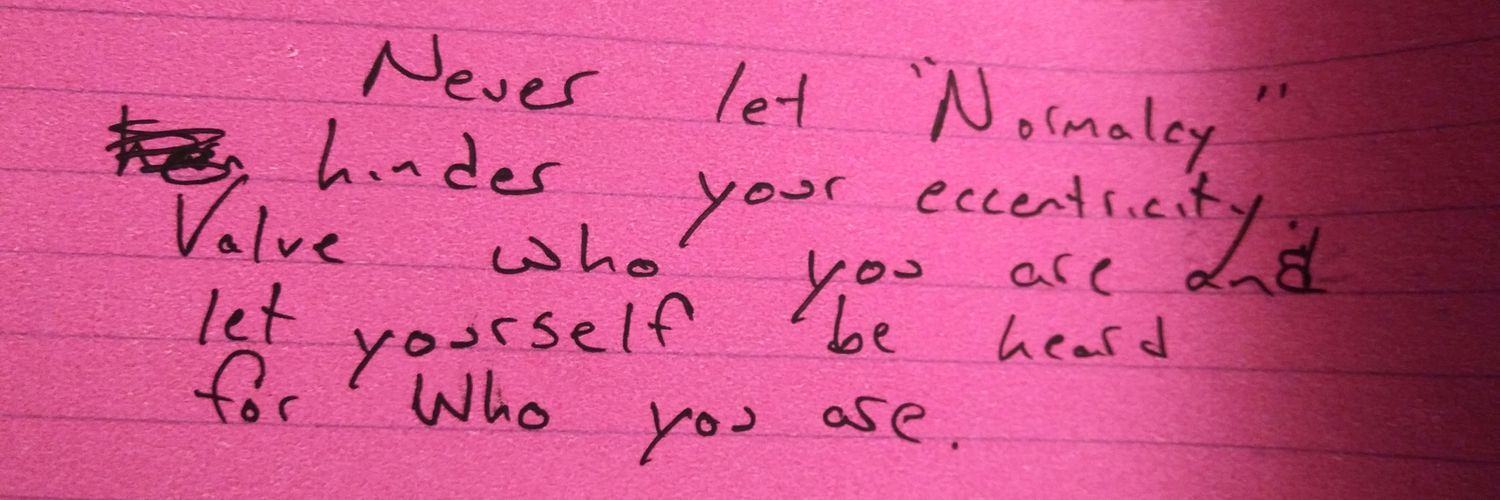 Never let "Normalcy"
hinder your eccentricity.
Value who you are and
let yourself be heard
for Who you are.